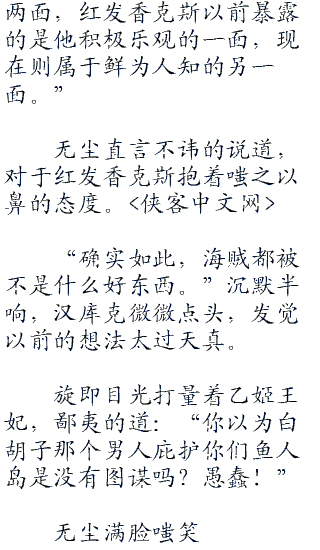 两面，红发香克斯以前暴露
的是他积极乐观的一面，现
在则属于鲜为人知的另一
面。”
无尘直言不讳的说道，
对于红发香克斯抱着嗤之以
鼻的态度。<侠客中文网>
“确实如此，海贼都被
不是什么好东西。”沉默半
响，汉库克微微点头，发觉
以前的想法太过天真。
旋即目光打量着乙姬王
妃，鄙夷的道：“你以为白
胡子那个男人庇护你们鱼人
岛是没有图谋吗？愚蠢！”
无尘满脸嗤笑